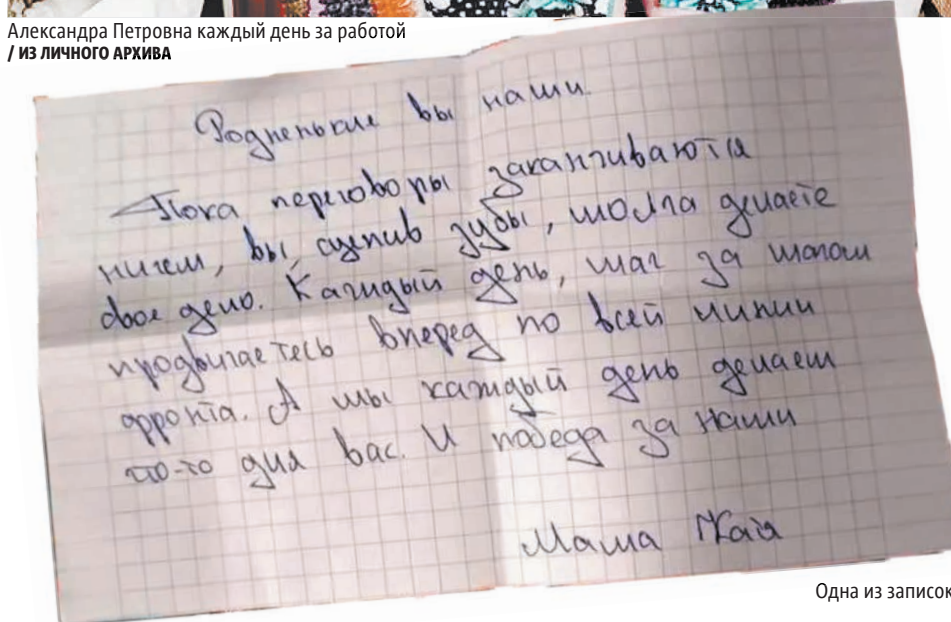 Александра Петровна каждый день за работой
/ ИЗ ЛИЧНОГО АРХИВА
Родненькие вы наши.
Пока переговоры заканчиваются
ничем, вы, сцепив зубы, молча делаете
свое дело. Каждый день, шаг за шагом
продвигаетесь вперед по всей линии
фронта. А мы каждый день делаем
что-то для вас. И победа за нами
Мама
Одна из записок